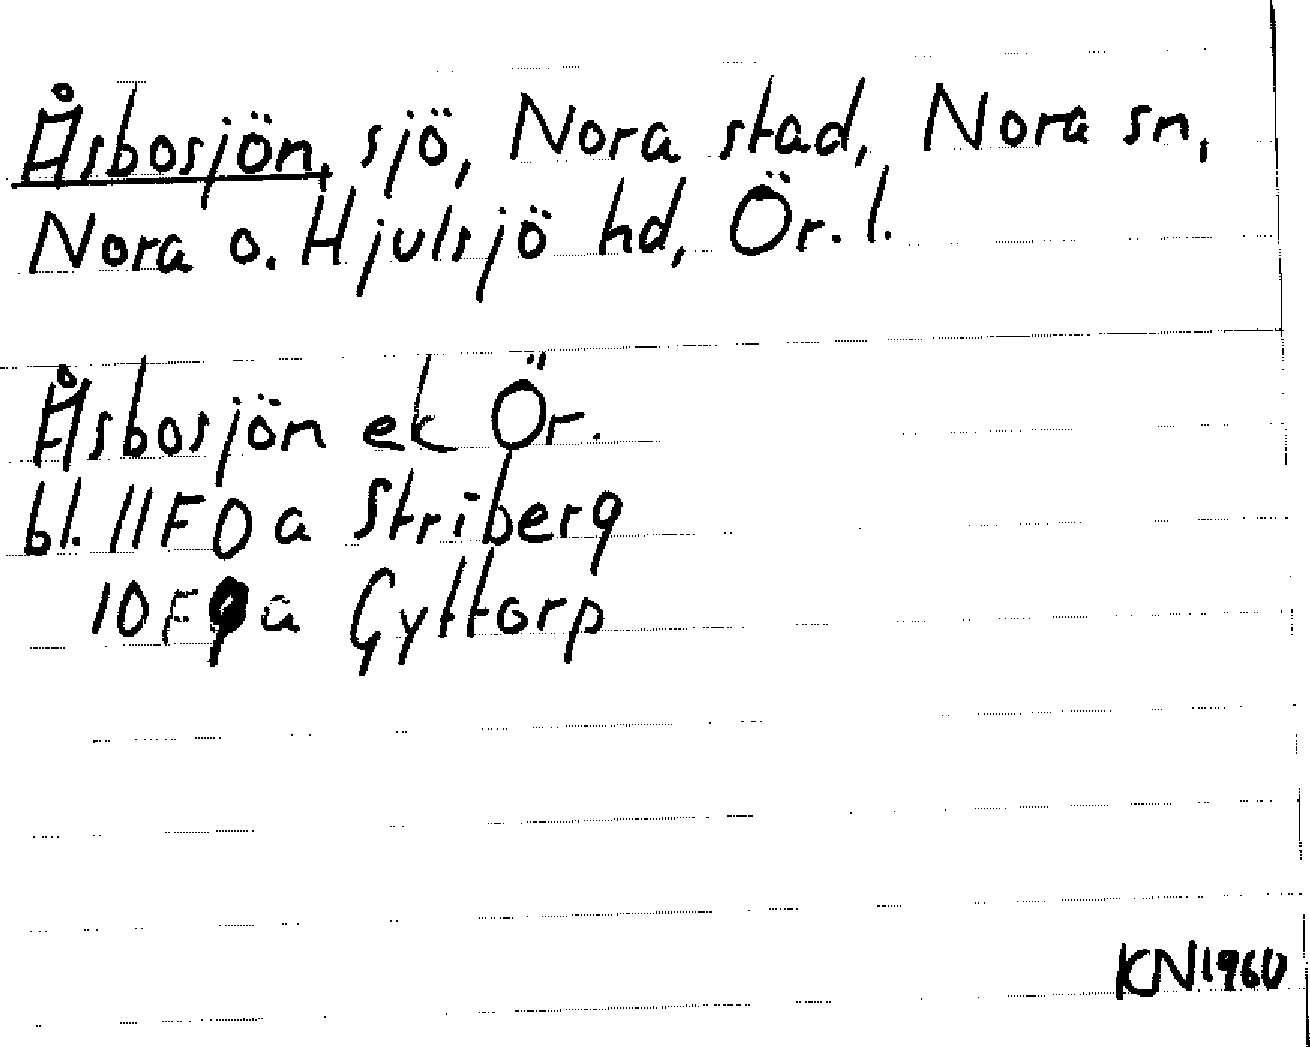 Åsbosjön, sjö, Nora stad, Nora sn,
Nora o. Hjulsjö hd, Ör. l.
Åsbosjön ek Ör.
bl. 11F 0 a Striberg
10F 9 a Gyttorp
KN 1960